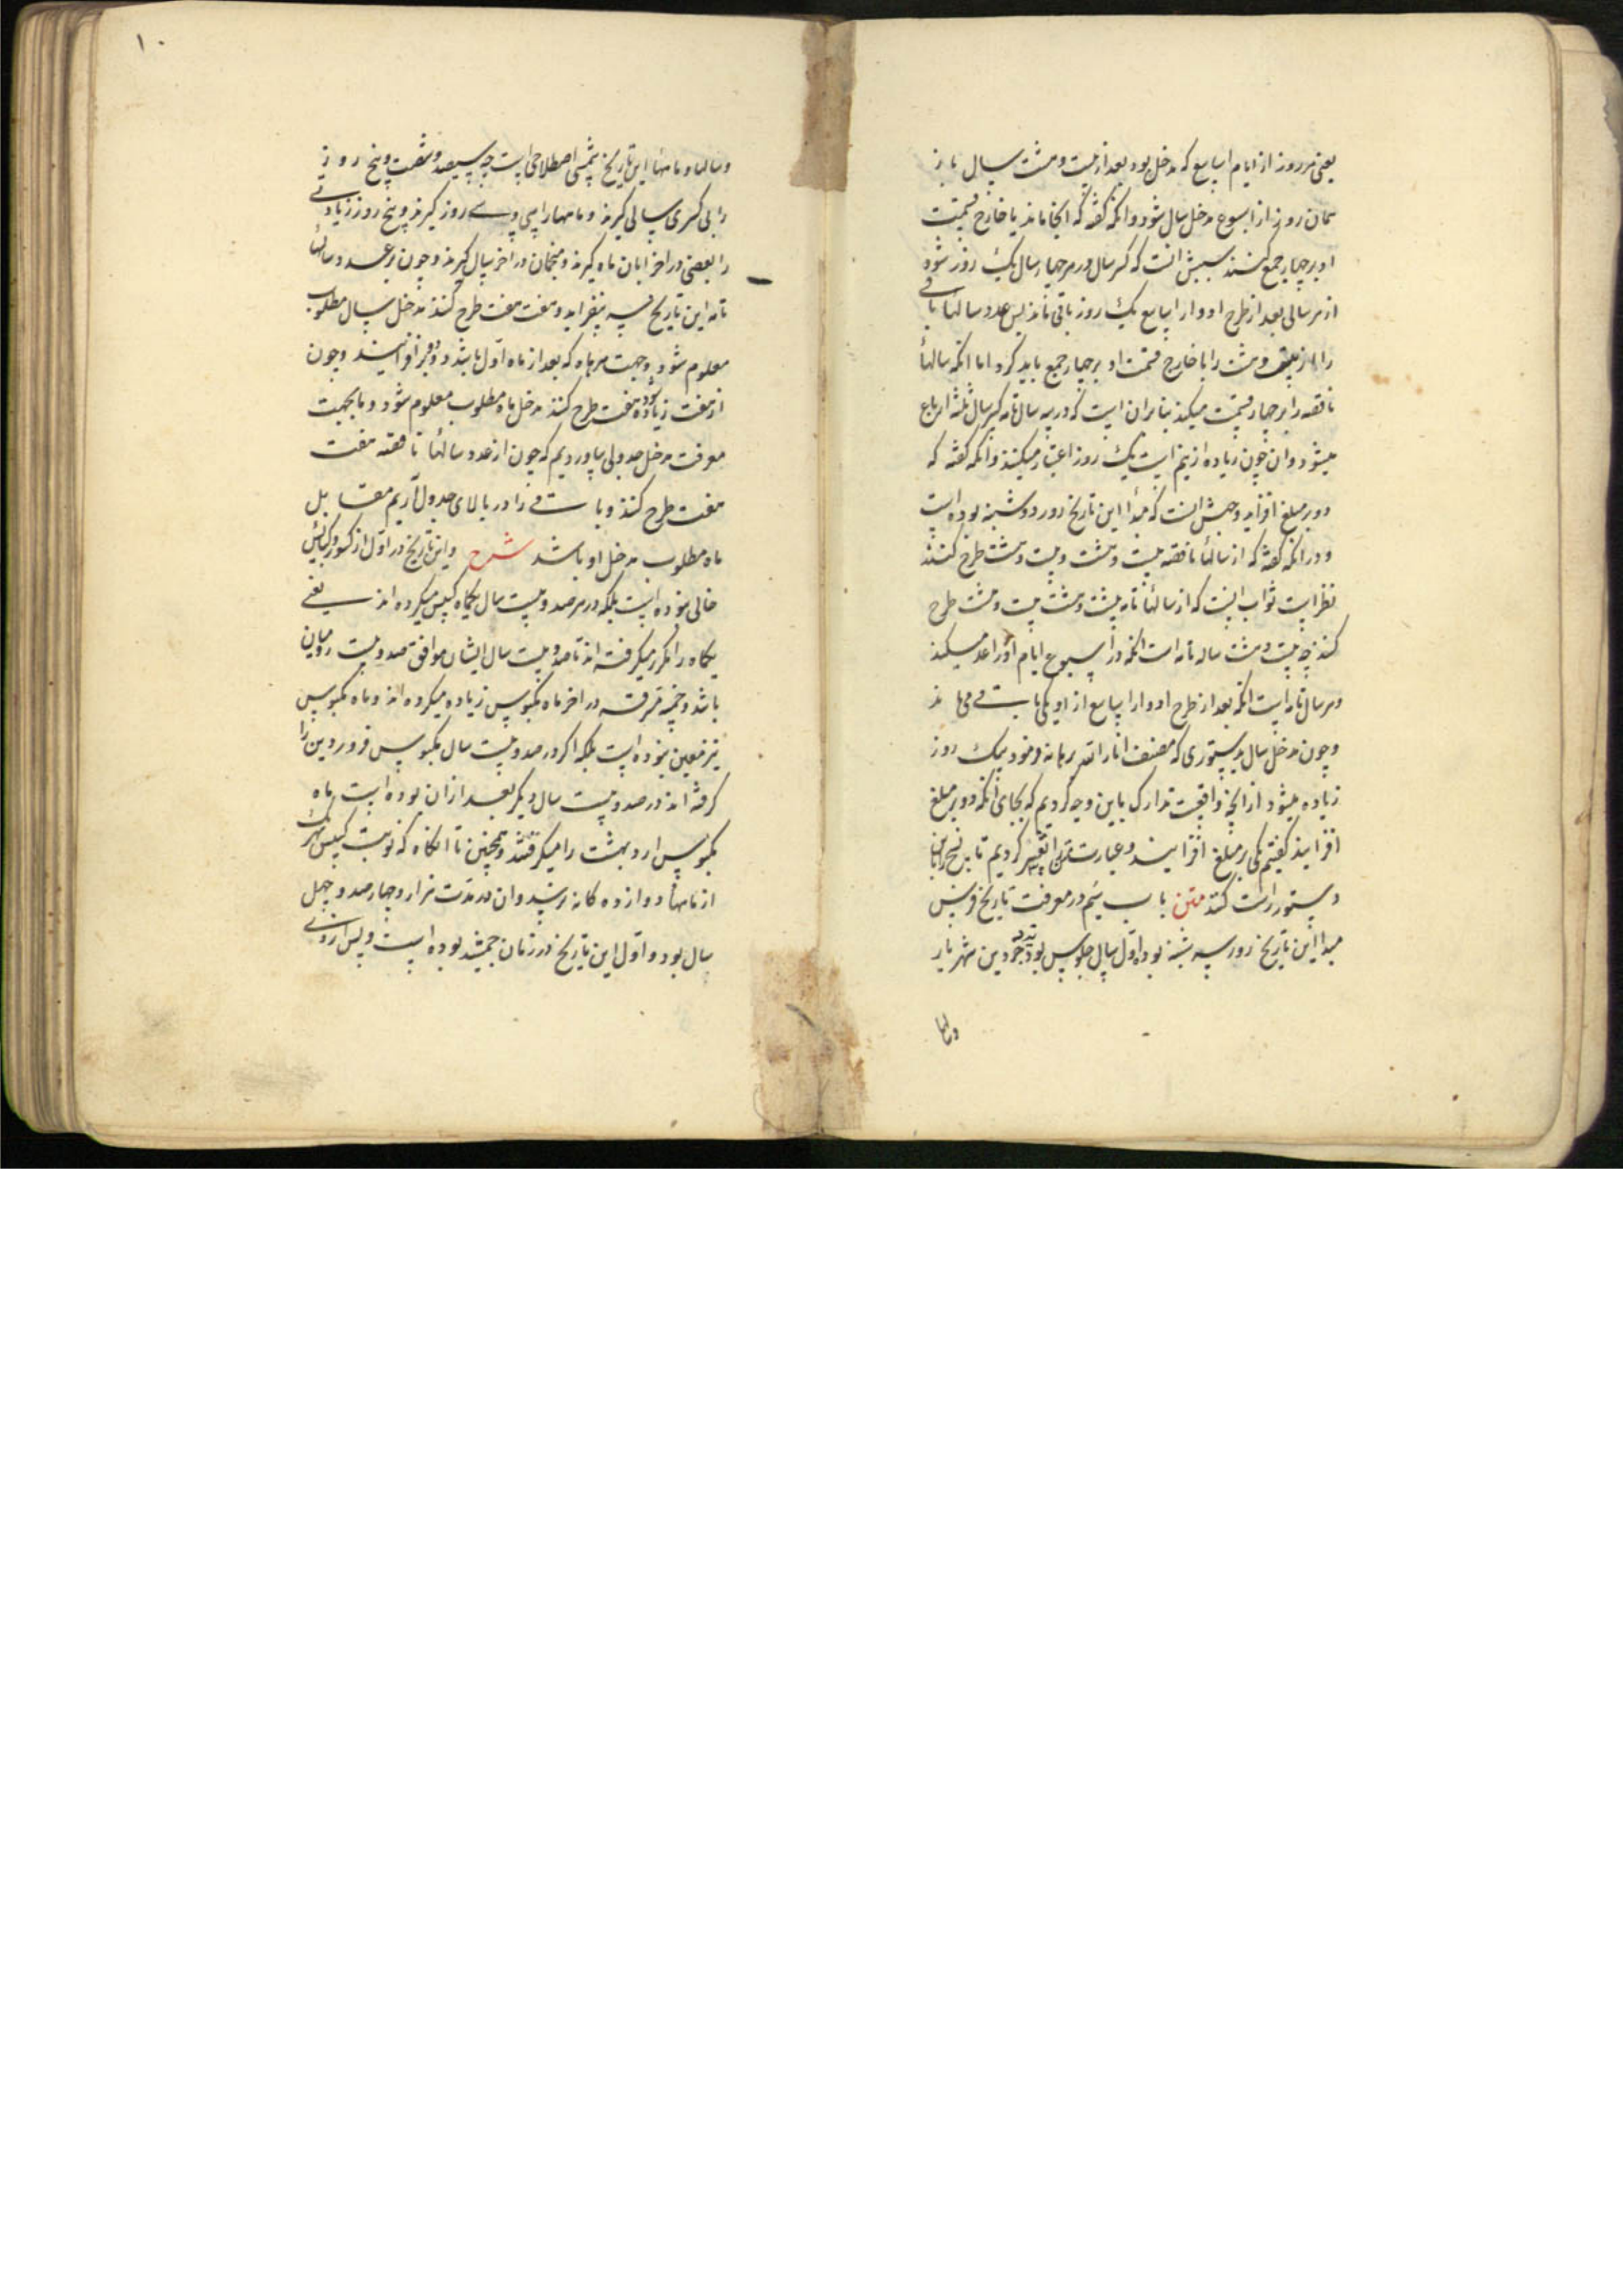 یعنی هر روز از ایام اسابیع که مدخل بود بعد از بیست و هشت سال باز
همان روز از اسبوع مدخل سال شود و انکه کفته که انجا ماند با خارج قسمت
او بر چهار جمع کنند سببش انست که کسر سال در هر چهار سال یک روز شود
از هر سالی بعد از طرح ادوار اسابیع یک روز باقی ماند پس عدد سالها باقی
را از بیست و هشت را با خارج قسمت او بر چهار جمع باید کرد اما انکه سالهاء
ناقصه را بر چهار قسمت میکند بنا بر ان است که در سه سال تامه کسر سال ثلثه ارباع
میشود و ان چون زیاده از نیم است یک روز اعتبار میکنند و انکه کفته که
دو بر مبلغ افزاید وجهش انست که مبداء این تاریخ روز دوشنبه بوده است
و در انکه کفته که از سالهاء ناقصه بیست و هشت و بیست و هشت طرح کنند
نظر است ثواب انست که از سالهاء تامه بیست و هشت بیست و هشت طرح
کنند چه بیست و هشت ساله تامه است انکه در اسبوع ایام او را عد میکند
و هر سال تامه است انکه بعد از طرح ادوار اسابیع از او یکی باقی می ماند
و چون مدخل سال بدستوری که مصنف انار الله برهانه فرمود یک روز
زیاده میشود از انچه واقعست تدارک باین وجه کردیم که بجای انکه دو بر مبلغ
افزایند کفتیم یکی بر مبلغ افزایند و عبارت متن را تغییر کردیم تا نسخ را باین
دستور راست کنند متن باب سیم در معرفت تاریخ فرس
مبداء این تاریخ روز سه شنبه بوده اول سال جلوس یزدجرد بن شهریار
وسالها
۱۰
و سالها و ماههاء این تاریخ شمسی اصطلاحی است چه سیصد و شصت و پنج روز
را بی کسری سالی کیرند و ماهها را سی و سی روز کیرند و پنج روز زیادتی
را بعضی در اخر ابان ماه کیرند و منجمان در اخر سال کیرند و چون بر عدد سالهاء
تامه این تاریخ سه بیفزاید و هفت هفت طرح کنند مدخل سال مطلوب
معلوم شود و جهت هر ماه که بعد از ماه اول باشد دو دو بر افزایند و چون
از هفت زیاده شود هفت طرح کنند مدخل ماه مطلوب معلوم شود و ما بجهت
معرفت مدخل جدولی بیاوردیم که چون از عدد سالهاء ناقصه هفت
هفت طرح کنند و باقی را در بالای جدول اریم مقابل
ماه مطلوب مدخل او باشد شرح و این تاریخ در اول از کسور و کبایس
خالی نبوده است بلکه در هر صد و بیست سال یکماه کبس میکرده اند یعنی
یکماه را مکرر میکرفته اند تا صد و بیست سال ایشان موافق صد و بیست رومیان
باشد و خمسه مسترقه در اخر ماه مکبوس زیاده میکرده اند و ماه مکبوس
نیز معین نبوده است بلکه اکر در صد و بیست سال مکبوس فروردین را
کرفته اند در صد و بیست سال دیکر بعد از ان بوده است ماه
مکبوس اردیبهشت را میکرفتند و همچنین تا انکاه که نوبت کبس بهر یک
از ماههاء دوازده کانه رسید و ان در مدت هزار و چهارصد و چهل
سال بود و اول این تاریخ در زمان جمشید بوده است و پس از وی